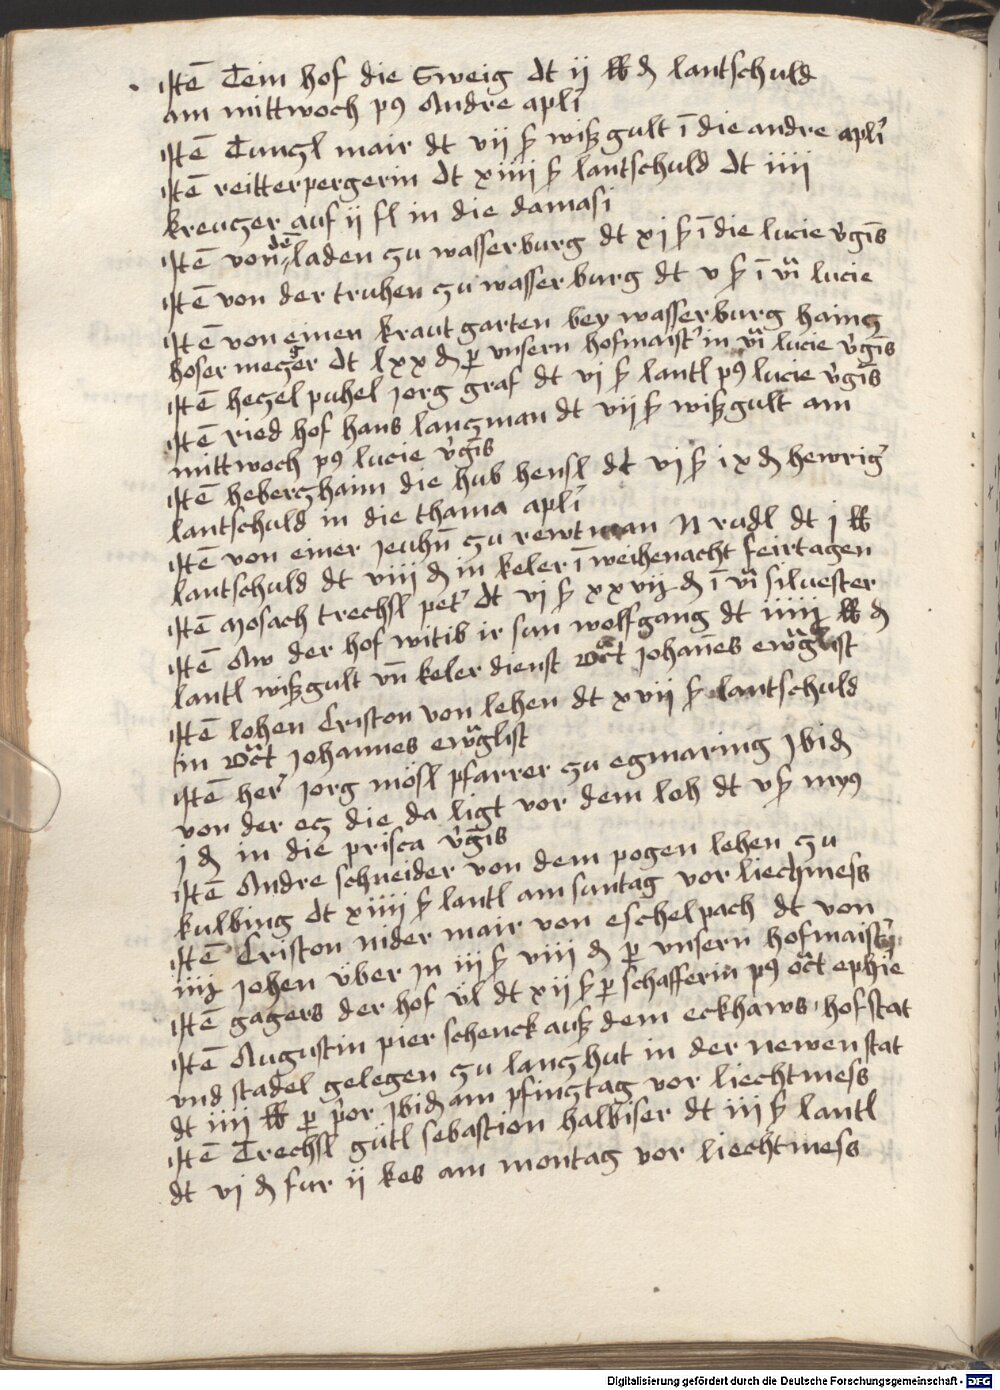 Itē Teim hof die Sweig dt ij lb d lantschuld
am mittwoch p9 Andre apli
Itē Tunczl mair dt vij ß wißgult ī die andre apli
Itē reitterpergerin dt xiiij ß lantschuld dt iiij
kreuczer auf ij fl in die damasi
Itē von dē laden zu wasserburg dt xj ß ī die lucie v̉gīs
Itē von der truhen zu wasserburg dt v ß ī vĩ lucie
Itē von einen kraut garten bey wasserburg haincz
hoser meczger dt lxx d ꝑ vnsern hofmaist̉ in vĩ lucie v̉gīs
Itē heczel puhel Jorg graf dt vj ß lantl p9 lucie v̉gīs
Itē ried hof hans lanczman dt vij ß wißgult am
mittwoch p9 lucie v̉gīs
Itē heberczhaim die hub hensl dt vj ß ix d hewrig̉
lantschuld in die thama apli
Itē von einer Jeuhn̄ zu rewtman N rudl dt j lb
lantschuld dt viij d in keler ī weihenacht feirtagen
Itē Mosach trechsl pet̉ dt vj ß xxvij d ī vĩ siluester
Itē Aw der hof witib ir sun wolfgang dt iiij lb d
lantl wißgult vn̄ keler dienst oct Johan̄es ewglist
Itē lohen Criston von lehen dt xvij ß lantschuld
in oct Johannes ewglist
Itē her̉ Jorg mösl pfarrer zu egmaring Ibid
von der ecz die da ligt vor dem loh dt v ß my9
j d in die prisca v̉gīs
Itē Andre schneider von dem pogen lehen zu
kulbing dt xiiij ß lantl am suntag vor liechmess
Itē Criston nider mair von eschelpach dt von
iiij Johen vber Jn iij ß viij d ꝑ vnsern hofmaist̉
Itē gagers der hof vl dt xij ß ꝑ schafferin p9 oct ephīe
Itē Augustin pier schenck auß dem eckhaws hofstat
vnd stadel gelegen zu lanczhut in der newen stat
dt iiij lb ꝑ p̉or Ibid am pfincztag vor liechtmess
Itē Trechsl gütl sebastion halbiser dt iij ß lantl
dt vj d fur ij kes am montag vor liechtmess
Digitalisierung gefördert durch die Deutsche Forschungsgemeinschaft - DFG